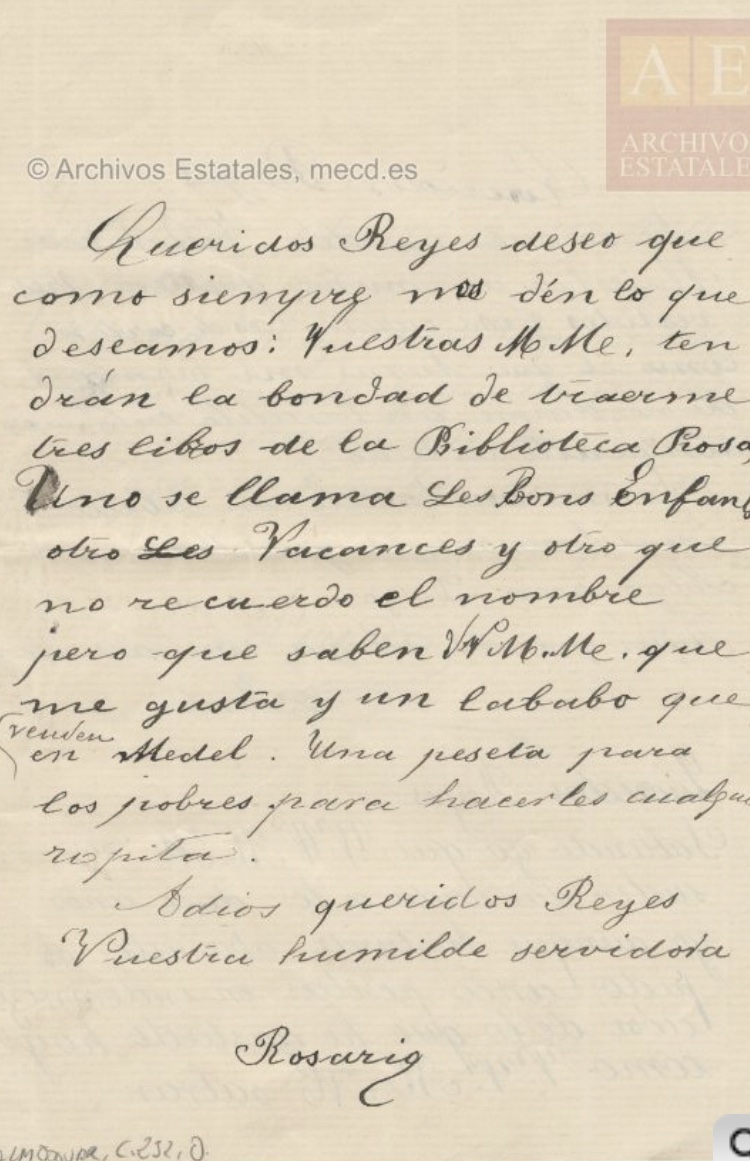 AE
ARCHIVO
ESTATALE
© Archivos Estatales, mecd.es
Queridos Reyes deseo que
como siempre nos dén lo que
deseamos: Vuestras M Me, ten
drán la bondad de traerme
tres libros de la Biblioteca Rosa
Uno se llama Les Bons Enfan
otro Les Vacances y otro que
no recuerdo el nombre
pero que saben VV M.Me. que
me gusta y un lababo que
venden
en Medel. Una peseta para
los pobres para hacerles cualqui
ropita.
Adios queridos Reyes
Vuestra humilde servidora
Rosario
C.232, D.